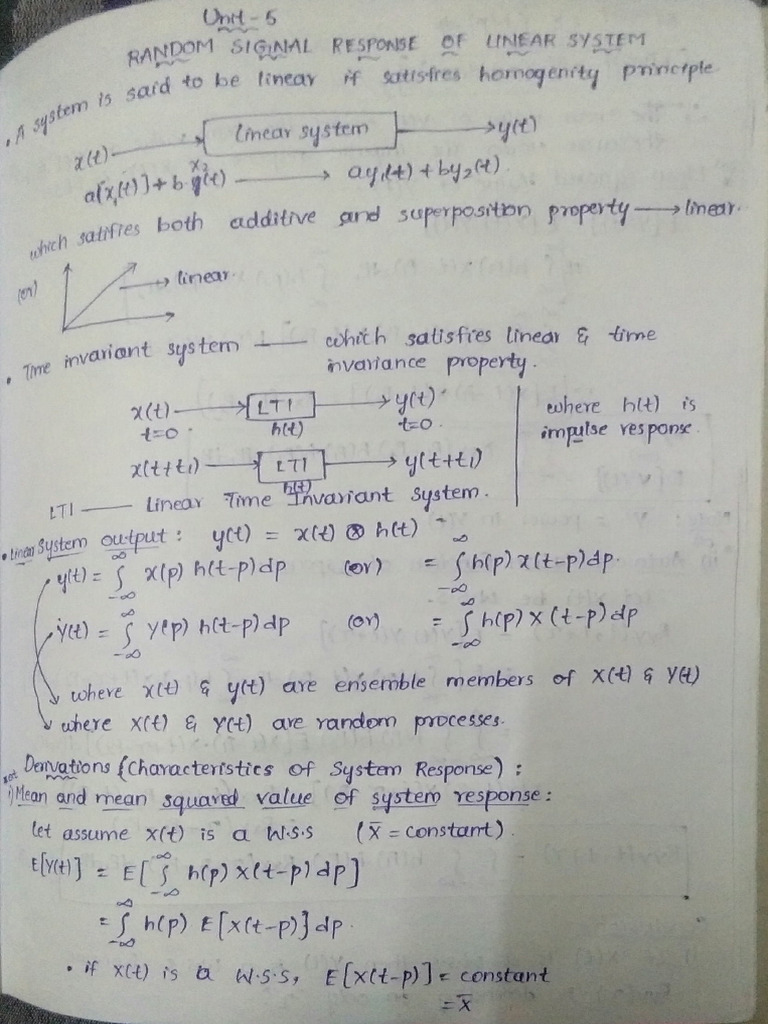 Unit-5
RANDOM SIGNAL RESPONSE OF LINEAR SYSTEM
• A system is said to be linear if satisfies homogenity principle
x(t) → Linear system → y(t)
a[x₁(t)] + b x₂(t) → ay₁(t) + by₂(t)
which satifies both additive and superposition property → linear.
(or) → linear.
• Time invariant system — which satisfies linear & time
invariance property.
x(t) → LTI → y(t)
t=0 h(t) t=0
where h(t) is
impulse response.
x(t+t₁) → LTI → y(t+t₁)
h(t)
LTI — Linear Time Invariant System.
• Linear System output: y(t) = x(t) ⊗ h(t)
y(t) = ∫_{-∞}^{∞} x(p) h(t-p) dp (or) = ∫_{-∞}^{∞} h(p) x(t-p) dp.
Y(t) = ∫_{-∞}^{∞} Y(p) h(t-p) dp (or) = ∫_{-∞}^{∞} h(p) X(t-p) dp
where x(t) & y(t) are ensemble members of X(t) & Y(t)
where X(t) & Y(t) are random processes.
Derivations (Characteristics of System Response) :
i) Mean and mean squared value of system response:
let assume X(t) is a W.S.S (X̄ = constant).
E[Y(t)] = E[∫_{-∞}^{∞} h(p) X(t-p) dp]
= ∫_{-∞}^{∞} h(p) E[X(t-p)] dp.
• if X(t) is a W.S.S, E[X(t-p)] = constant
= X̄